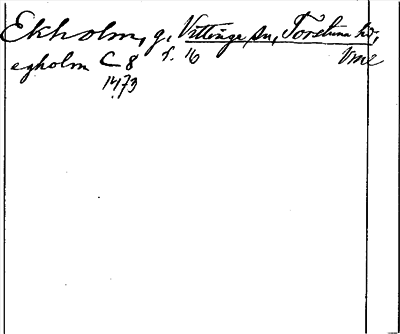 Ekholm, g, Vittinge sn, Torstuna hd,
egholm C 8 f. 16 Vml
1473